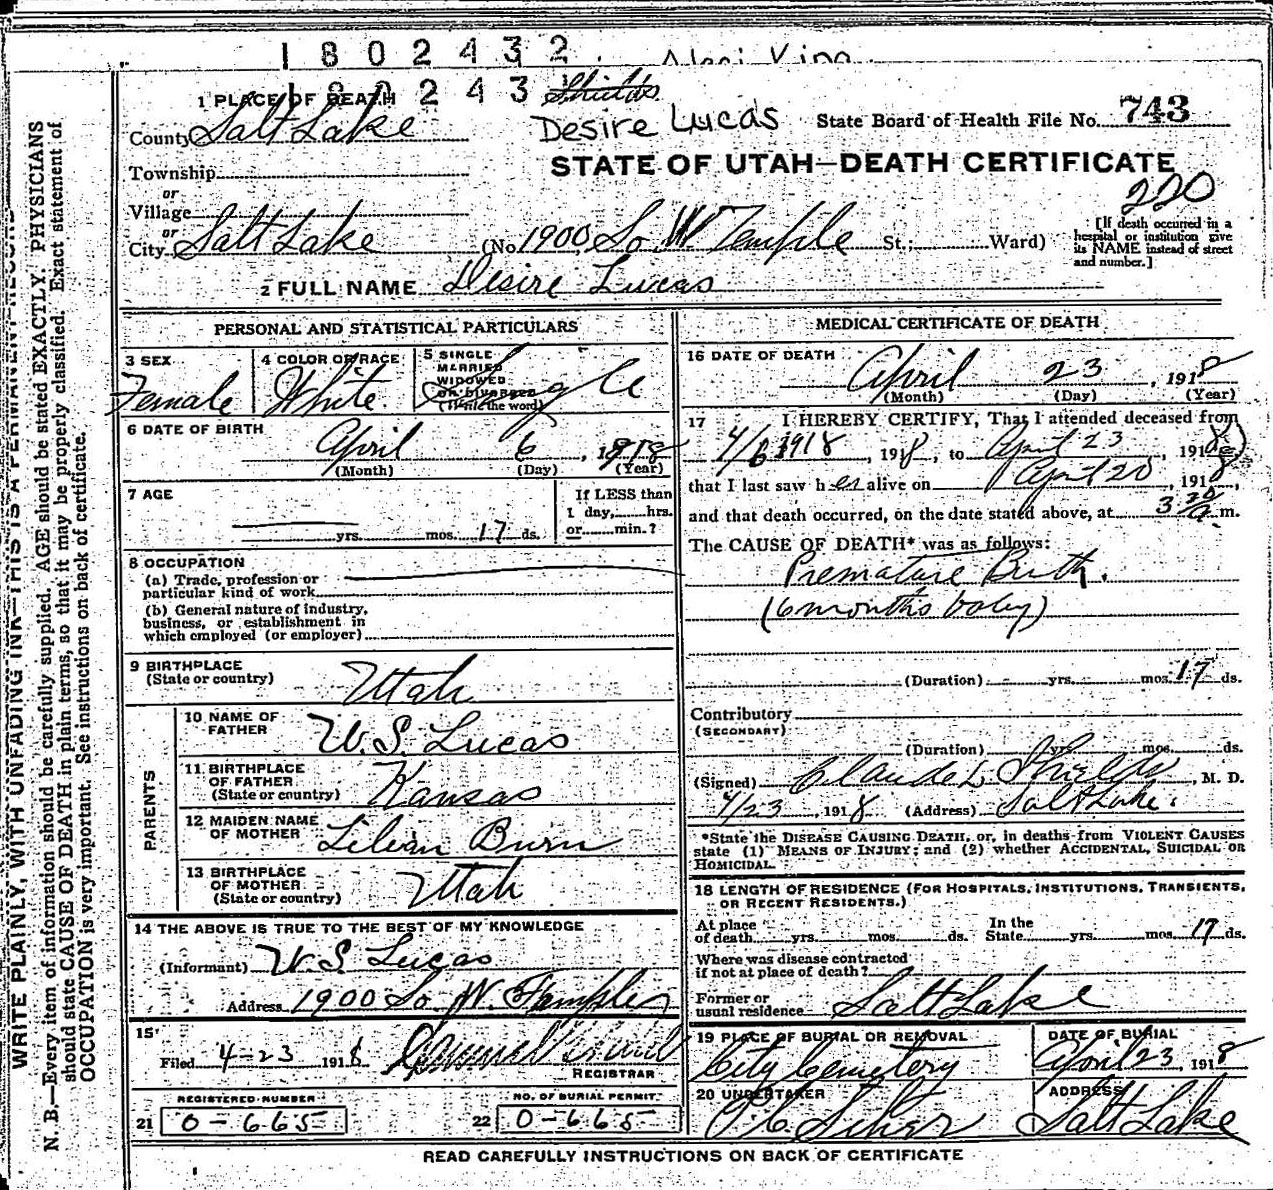 1802432
180243
Desire Lucas
1 PLACE OF DEATH
County Salt Lake
State Board of Health File No. 743
STATE OF UTAH—DEATH CERTIFICATE
220
Township
or
Village
or
City Salt Lake (No. 1900, So. W Temple St.; Ward)
[If death occurred in a hospital or institution give its NAME instead of street and number.]
2 FULL NAME Desire Lucas
PERSONAL AND STATISTICAL PARTICULARS
3 SEX Female
4 COLOR OR RACE White
5 SINGLE MARRIED WIDOWED OR DIVORCED (Write the word) Single
6 DATE OF BIRTH April 6, 1918
(Month) (Day) (Year)
7 AGE yrs. mos. 17 ds.
If LESS than 1 day, hrs. or min.?
8 OCCUPATION
(a) Trade, profession or particular kind of work
(b) General nature of industry, business, or establishment in which employed (or employer)
9 BIRTHPLACE (State or country) Utah
PARENTS
10 NAME OF FATHER W. S. Lucas
11 BIRTHPLACE OF FATHER (State or country) Kansas
12 MAIDEN NAME OF MOTHER Lilian Burn
13 BIRTHPLACE OF MOTHER (State or country) Utah
14 THE ABOVE IS TRUE TO THE BEST OF MY KNOWLEDGE
(Informant) W. S. Lucas
Address 1900 So W. Temple
15
Filed 4-23 1918
REGISTRAR
REGISTERED NUMBER
21 0-665
NO. OF BURIAL PERMIT
22 0-665
MEDICAL CERTIFICATE OF DEATH
16 DATE OF DEATH April 23, 1918
(Month) (Day) (Year)
17 I HEREBY CERTIFY, That I attended deceased from
4/6 1918, 1918, to April 23, 1918
that I last saw her alive on April 20, 1918,
and that death occurred, on the date stated above, at 3 30 a m.
The CAUSE OF DEATH* was as follows:
Premature Birth.
(6 months baby)
(Duration) yrs. mos. 17 ds.
Contributory
(SECONDARY)
(Duration) yrs. mos. ds.
(Signed) Claude L Shields, M. D.
4/23, 1918 (Address) Salt Lake.
*State the DISEASE CAUSING DEATH, or, in deaths from VIOLENT CAUSES state (1) MEANS OF INJURY; and (2) whether ACCIDENTAL, SUICIDAL OR HOMICIDAL.
18 LENGTH OF RESIDENCE (FOR HOSPITALS, INSTITUTIONS, TRANSIENTS, OR RECENT RESIDENTS.)
At place of death yrs. mos. ds. In the State yrs. mos. 17 ds.
Where was disease contracted if not at place of death?
Former or usual residence Salt Lake
19 PLACE OF BURIAL OR REMOVAL City Cemetery
DATE OF BURIAL April 23, 1918
20 UNDERTAKER
ADDRESS Salt Lake
READ CAREFULLY INSTRUCTIONS ON BACK OF CERTIFICATE
WRITE PLAINLY, WITH UNFADING INK—THIS IS A PERMANENT RECORD
N. B.—Every item of information should be carefully supplied. AGE should be stated EXACTLY. PHYSICIANS
should state CAUSE OF DEATH in plain terms, so that it may be properly classified. Exact statement of
OCCUPATION is very important. See instructions on back of certificate.